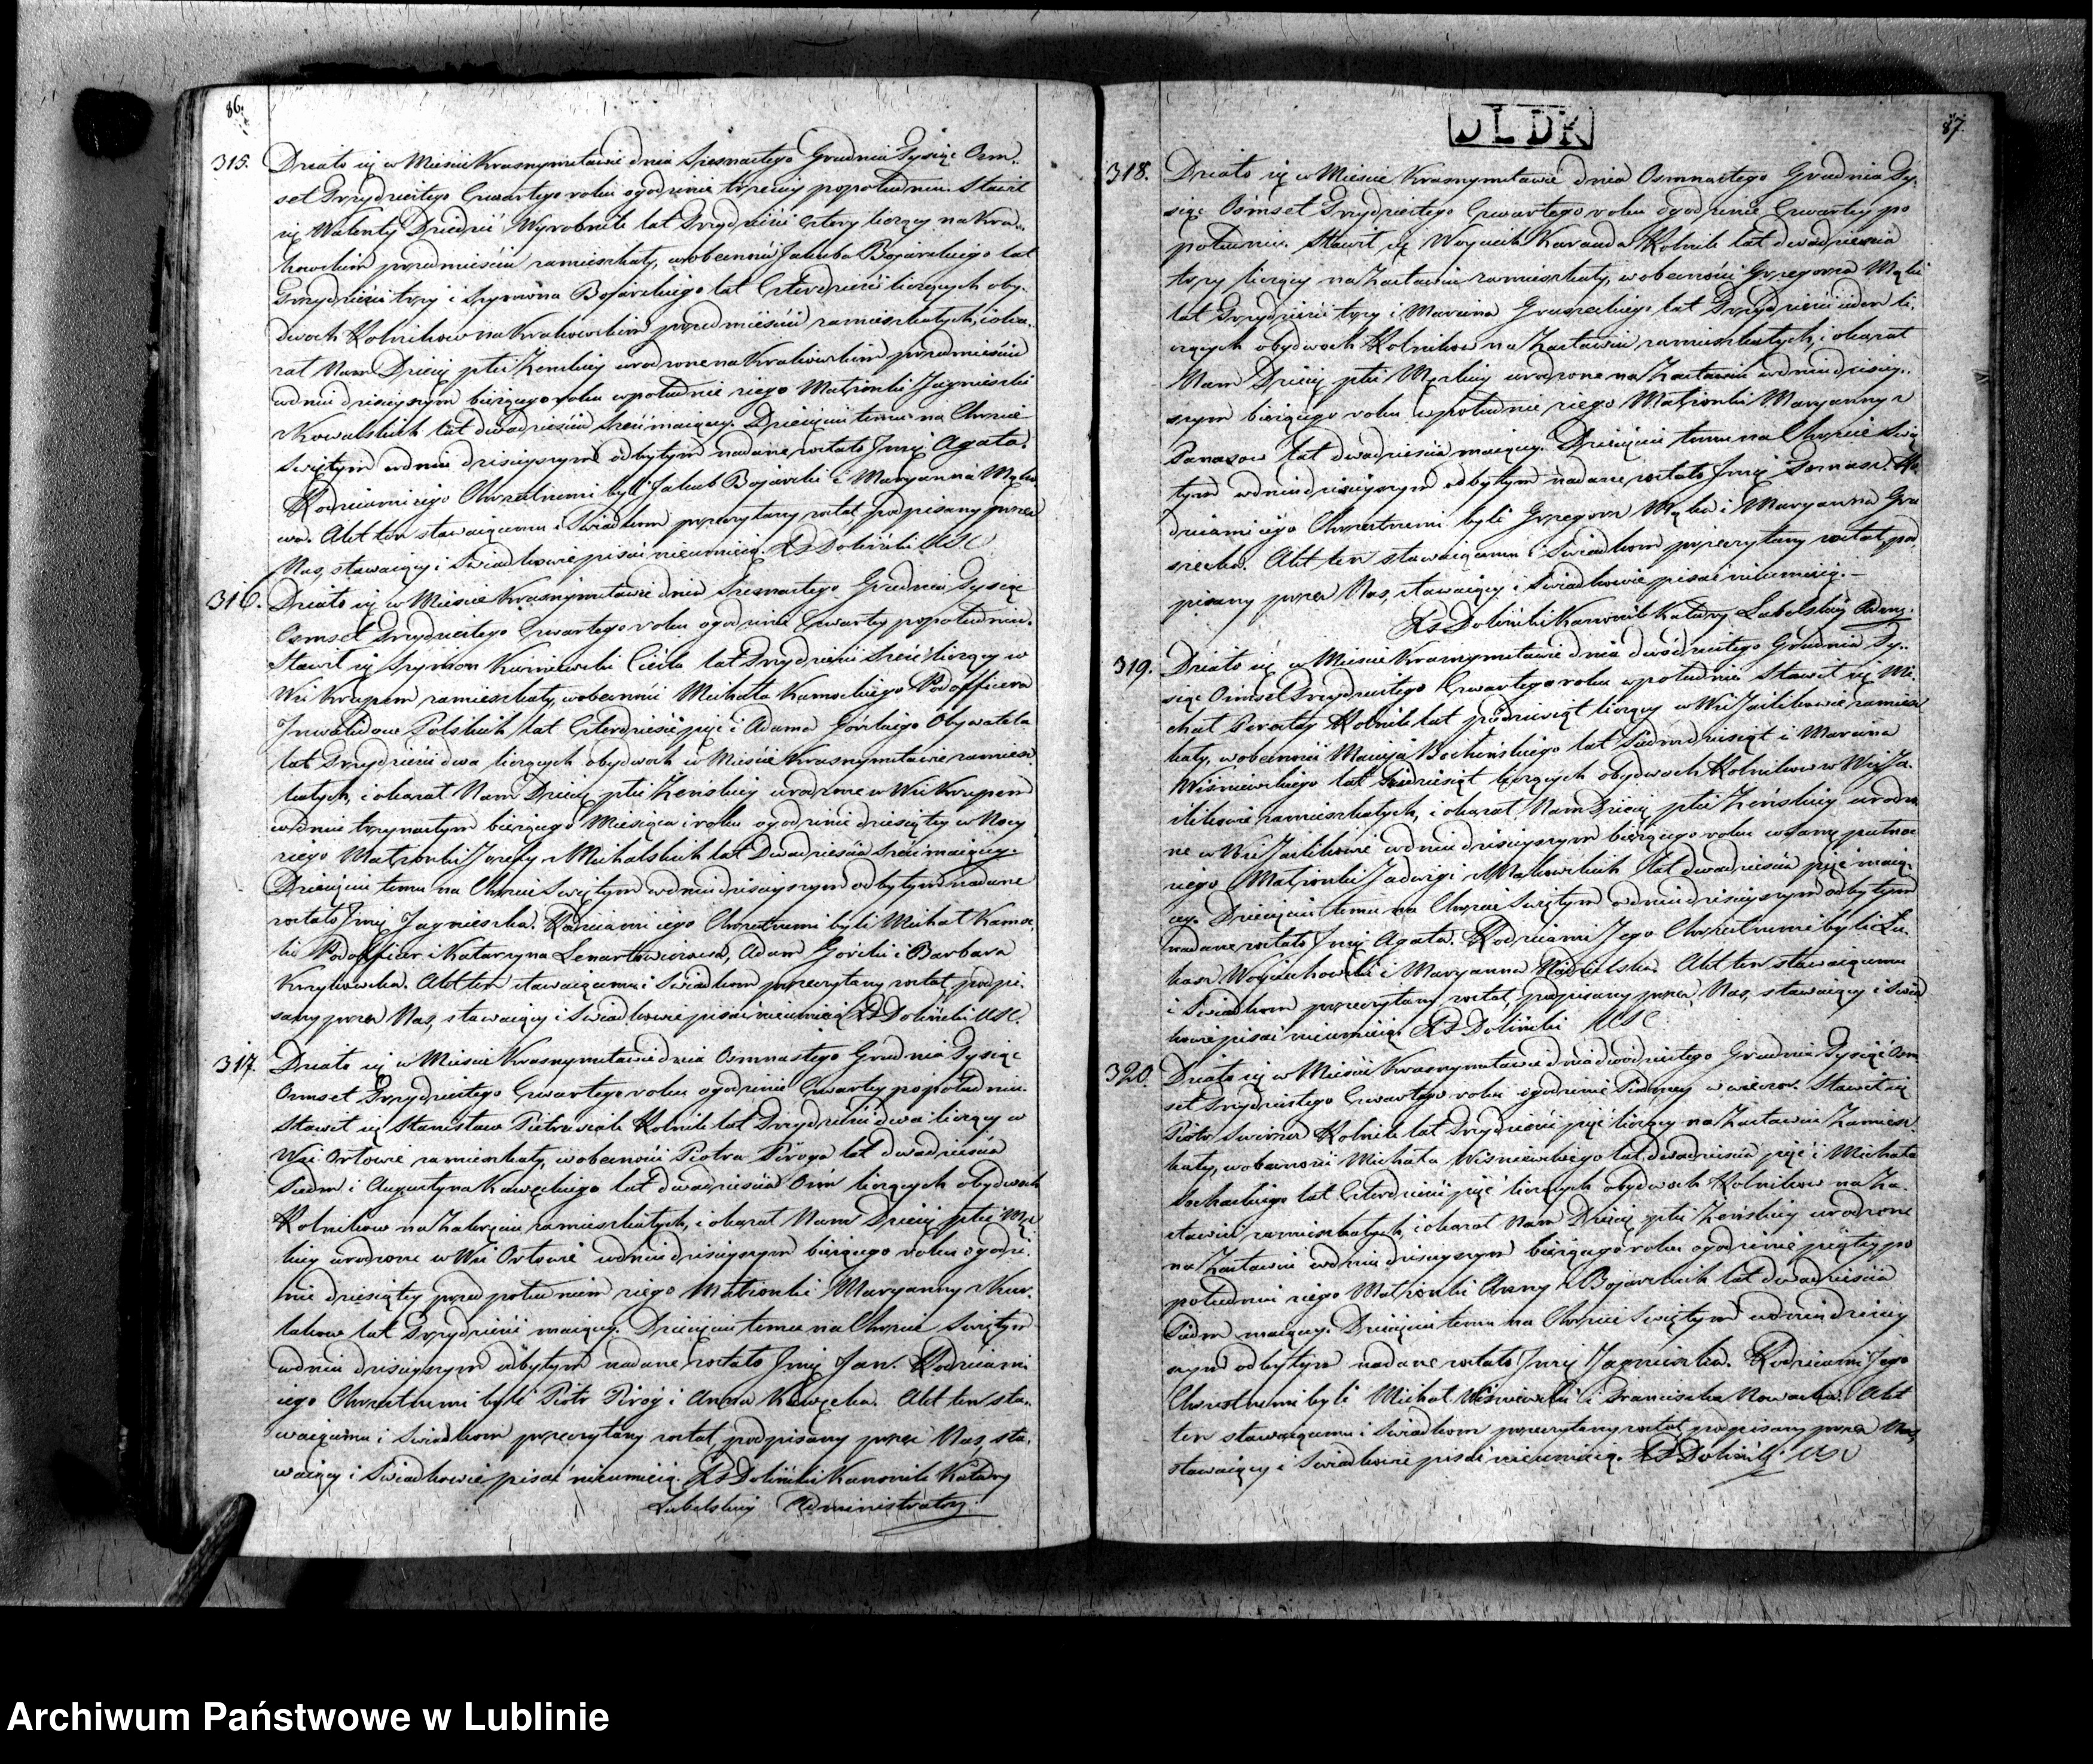 86.
315. Działo się w Mieście Krasnymstawie dnia Szesnastego Grudnia Tysiąc Ośm-
set Trzydziestego Czwartego roku o godzinie trzeciey popołudniu. Stawił
się Walenty Dziedzic Wyrobnik lat Trzydzieści cztery liczący na Kra-
kowskim przedmieściu zamieszkały, w obecności Jakuba Bojarskiego lat
Trzydzieści trzy i Szymona Bojarskiego lat Czterdzieści liczących oby-
dwoch Rolnikow na Krakowskim przedmieściu zamieszkałych, i oka-
zał Nam Dziecię płci Zenskiey urodzone na Krakowskim przedmieściu
w dniu dzisieyszym bieżącego roku w południe z iego Małżonki Jagnieszki
z Kowalskich lat dwadzieścia sześć maiącey. Dziecięciu temu na Chrzcie
Swiętym w dniu dzisieyszym odbytym nadane zostało Imię Agata.
Rodzicami iego Chrzestnemi byli Jakub Bojarski i Maryanna
Akt ten stawaiącemu i Swiadkom przeczytany został, podpisany przez
Nas, stawaiący i Swiadkowie pisać nieumieią. Xs Doliński USC
316. Działo się w Mieście Krasnymstawie dnia Szesnastego Grudnia Tysiąc
Osmset Trzydziestego Czwartego roku o godzinie Czwartey popołudniu.
Stawił się Szymon Kuśniewski Cieśla lat Trzydzieści sześć liczący w
Wsi Krupem zamieszkały, w obecności Michała Kamockiego Podofficera
Inwalidow Polskich lat Czterdzieści pięć i Adama Górskiego Obywatela
lat Trzydzieści dwa liczących obydwoch w Mieście Krasnymstawie zamiesz
kałych, i okazał Nam Dziecię płci Zeńskiey urodzone w Wsi Krupem
w dniu trzynastym bieżącego Miesiąca i roku o godzinie dziesiątey w Nocy
z iego Małżonki Jozefy z Michalskich lat Dwadzieścia sześć maiącey.
Dziecięciu temu na Chrzcie Swiętym w dniu dzisieyszym odbytym nadane
zostało Imię Jagnieszka. Rodzicami iego Chrzestnemi byli Michał Kamoc
ki Podofficer i Katarzyna Lenartowiczowa, Adam Górski i Barbara
Krzykowska. Akt ten stawaiącemu i Swiadkom przeczytany został, podpi-
sany przez Nas, stawaiący i Swiadkowie pisać nieumieią Xs Doliński USC.
317. Działo się w Mieście Krasnymstawie dnia Osmnastego Grudnia Tysiąc
Osmset Trzydziestego Czwartego roku o godzinie Czwartey popołudniu.
Stawił się Stanisław Pietrusiak Rolnik lat Trzydzieści dwa liczący w
Wsi Orłowie zamieszkały, w obecności Piotra Piroga lat dwadzieścia
Siedm i Augustyna Kawęckiego lat dwadzieścia Ośm liczących obydwoch
Rolnikow na Zakręciu zamieszkałych, i okazał Nam Dziecię płci Męz
kiey urodzone w Wsi Orłowie w dniu dzisieyszym bieżącego roku o godzi-
nie dziesiątey przed południem z iego Małżonki Maryanny z Kow-
lakow lat Trzydzieści maiącey. Dziecięciu temu na Chrzcie Swiętym
w dniu dzisieyszym odbytym nadane zostało Imię Jan. Rodzicami
iego Chrzestnemi byli Piotr Piróg i Anna Kawęcka. Akt ten sta-
waiącemu i Swiadkom przeczytany został, podpisany przez Nas, sta-
waiący i Swiadkowie pisać nieumieią. Xs Doliński Kanonik Katedry
Lubelskiey Administrator.
87.
DLDK
318. Działo się w Mieście Krasnymstawie dnia Osmnastego Grudnia Ty-
siąc Ośmset Trzydziestego Czwartego roku o godzinie Czwartey po
południu. Stawił się Woyciech Karauda Rolnik lat dwadzieścia
trzy liczący na Zastawiu zamieszkały, w obecności Grzegorza Męki
lat Trzydzieści trzy i Marcina lat Trzydzieści ieden li-
czących obydwoch Rolnikow na Zastawiu zamieszkałych, i okazał
Nam Dziecię płci Męzkiey urodzone na Zastawiu w dniu dzisiey-
szym bieżącego roku w południe z iego Małżonki Maryanny z
Panasow lat dwadzieścia maiącey. Dziecięciu temu na Chrzcie Swię
tym w dniu dzisieyszym odbytym nadane zostało Imię Tomasz. Ro
dzicami iego Chrzestnemi byli Grzegorz Męka i Maryanna
Akt ten stawaiącemu i Swiadkom przeczytany został, pod
pisany przez Nas, stawaiący i Swiadkowie pisać nieumieią.—
Xs Doliński Kanonik Katedry Lubelskiey Admi:
319. Działo się w Mieście Krasnymstawie dnia dwódziestego Grudnia Ty-
siąc Ośmset Trzydziestego Czwartego roku w południe Stawił się Mi-
chał Rolnik lat liczący w Wsi Jaślikowie zamiesz
kały, w obecności Macieja Bochińskiego lat Siedmdziesiąt i Marcina
Wiśniewskiego lat liczących obydwoch Rolnikow w Wsi Ja-
ślikowie zamieszkałych, i okazał Nam Dziecię płci Zeńskiey urodzo
ne w Wsi Jaślikowie w dniu dzisieyszym bieżącego roku w samo połud
z iego Małżonki Jadwigi z Makowskich lat dwadzieścia pięć maią-
cey. Dziecięciu temu na Chrzcie Swiętym w dniu dzisieyszym odbytym
nadane zostało Imię Agata. Rodzicami Jego Chrzestnemi byli Łu-
kasz Woyciechowski i Maryanna Akt ten stawaiącemu
i Swiadkom przeczytany został, podpisany przez Nas, stawaiący i Swiad
kowie pisać nieumieią. Xs Doliński USC
320. Działo się w Mieście Krasnymstawie dnia dwódziestego Grudnia Tysiąc Osm
set Trzydziestego Czwartego roku o godzinie Siódmey w wieczor. Stawił się
Piotr Rolnik lat Trzydzieści pięć liczący na Zastawiu Zamiesz
kały, w obecności Michała Wiśniewskiego lat dwadzieścia pięć i Michała
Sochackiego lat Czterdzieści pięć liczących obydwoch Rolnikow na Za-
stawiu zamieszkałych, i okazał Nam Dziecię płci Zeńskiey urodzone
na Zastawiu w dniu dzisieyszym bieżącego roku o godzinie piątey po
południu z iego Małżonki Anny z Bojarskich lat dwadzieścia
Siedm maiącey. Dziecięciu temu na Chrzcie Swiętym w dniu dzisiey
szym odbytym nadane zostało Imię Jagnieszka. Rodzicami Jego
Chrzestnemi byli Michał Wiśniewski i Franciszka Nowacka. Akt
ten stawaiącemu i Swiadkom przeczytany został podpisany przez Nas,
stawaiący i Swiadkowie pisać nieumieią. Xs Doliński USC
Archiwum Państwowe w Lublinie